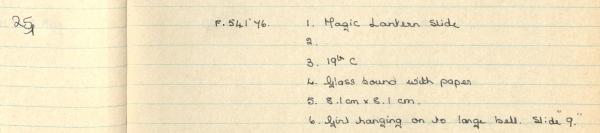 25
F.541'76. 1. Magic Lantern Slide
2.
3. 19th C
4. Glass bound with paper
5. 8.1cm x 8.1 cm.
6. Girl hanging on to large bell. Slide "9."